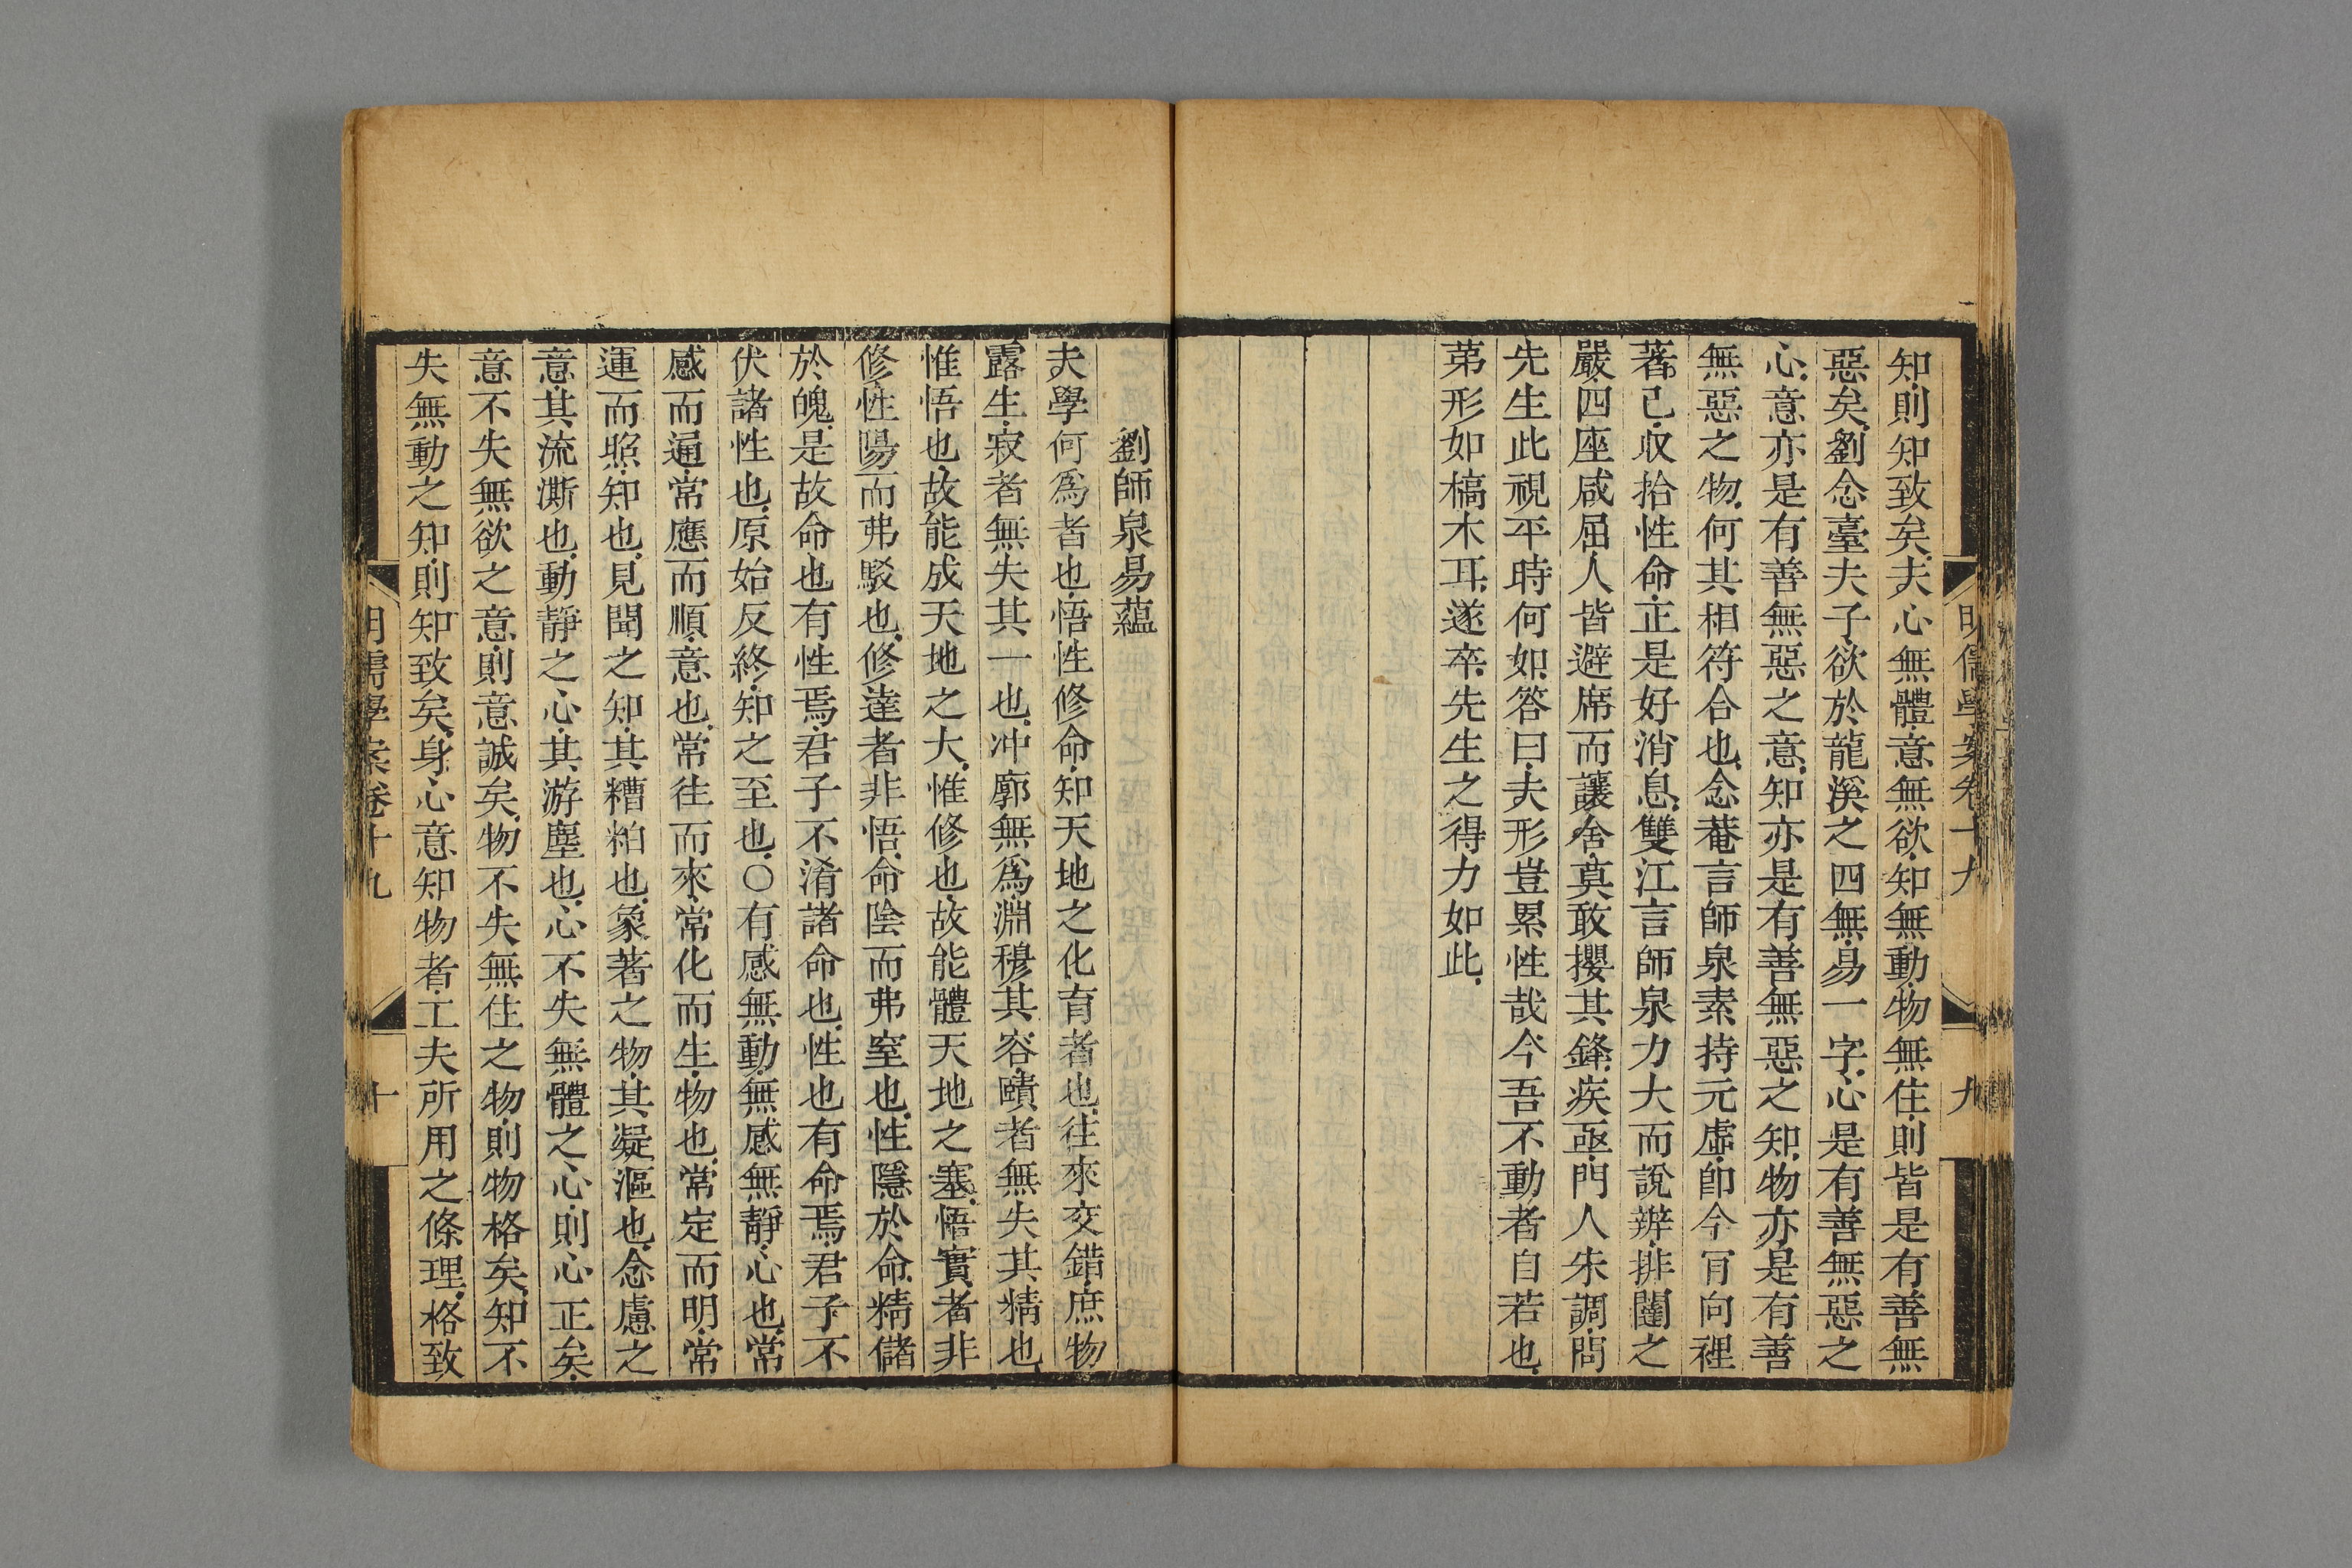 明儒學案卷十九
九
知則知致矣夫心無體意無欲知無動物無住則皆是有善無
惡矣劉念臺夫子欲於龍溪之四無易一字心是有善無惡之
心意亦是有善無惡之意知亦是有善無惡之知物亦是有善
無惡之物何其相符合也念菴言師泉素持元虛卽今肎向裡
著己收拾性命正是好消息雙江言師泉力大而說辨排闔之
嚴四座咸屈人皆避席而讓舍莫敢攖其鋒疾亟門人朱調問
先生此視平時何如答曰夫形豈累性哉今吾不動者自若也
第形如槁木耳遂卒先生之得力如此
劉師泉易蘊
夫學何爲者也悟性修命知天地之化育者也往來交錯庶物
露生寂者無失其一也冲廓無爲淵穆其容賾者無失其精也
惟悟也故能成天地之大惟修也故能體天地之塞悟實者非
修性陽而弗駁也修達者非悟命陰而弗窒也性隱於命精儲
於魄是故命也有性焉君子不淆諸命也性也有命焉君子不
伏諸性也原始反終知之至也○有感無動無感無靜心也常
感而通常應而順意也常往而來常化而生物也常定而明常
運而照知也見聞之知其糟粕也象著之物其凝漚也念慮之
意其流澌也動靜之心其游塵也心不失無體之心則心正矣
意不失無欲之意則意誠矣物不失無住之物則物格矣知不
失無動之知則知致矣身心意知物者工夫所用之條理格致
明儒學案卷十九
十